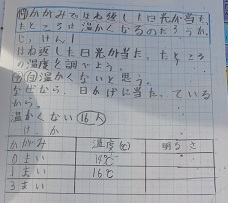 問かがみではね返した日光が当たっ
たところは温かくなるのだろうか。
じっけん1
はね返した日光が当たったところ
の温度を調べよう。
予自温かくないと思う。
なぜなら、日かげに当たっている
から。
温かくない16人
けっか
かがみ 温度(℃) 明るさ
0まい 14℃
1まい 16℃
3まい